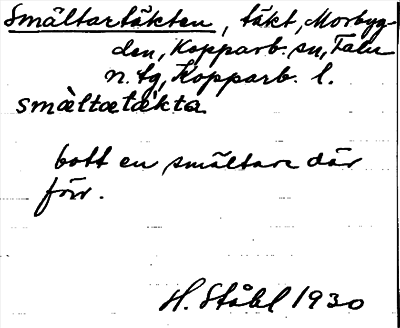 Smältartäkten, täkt, Morbyg-
den, Kopparb. sn, Falu
n. tg, Kopparb. l.
smàltatàkta
bott en smältare där
förr.
H. Ståhl 1930